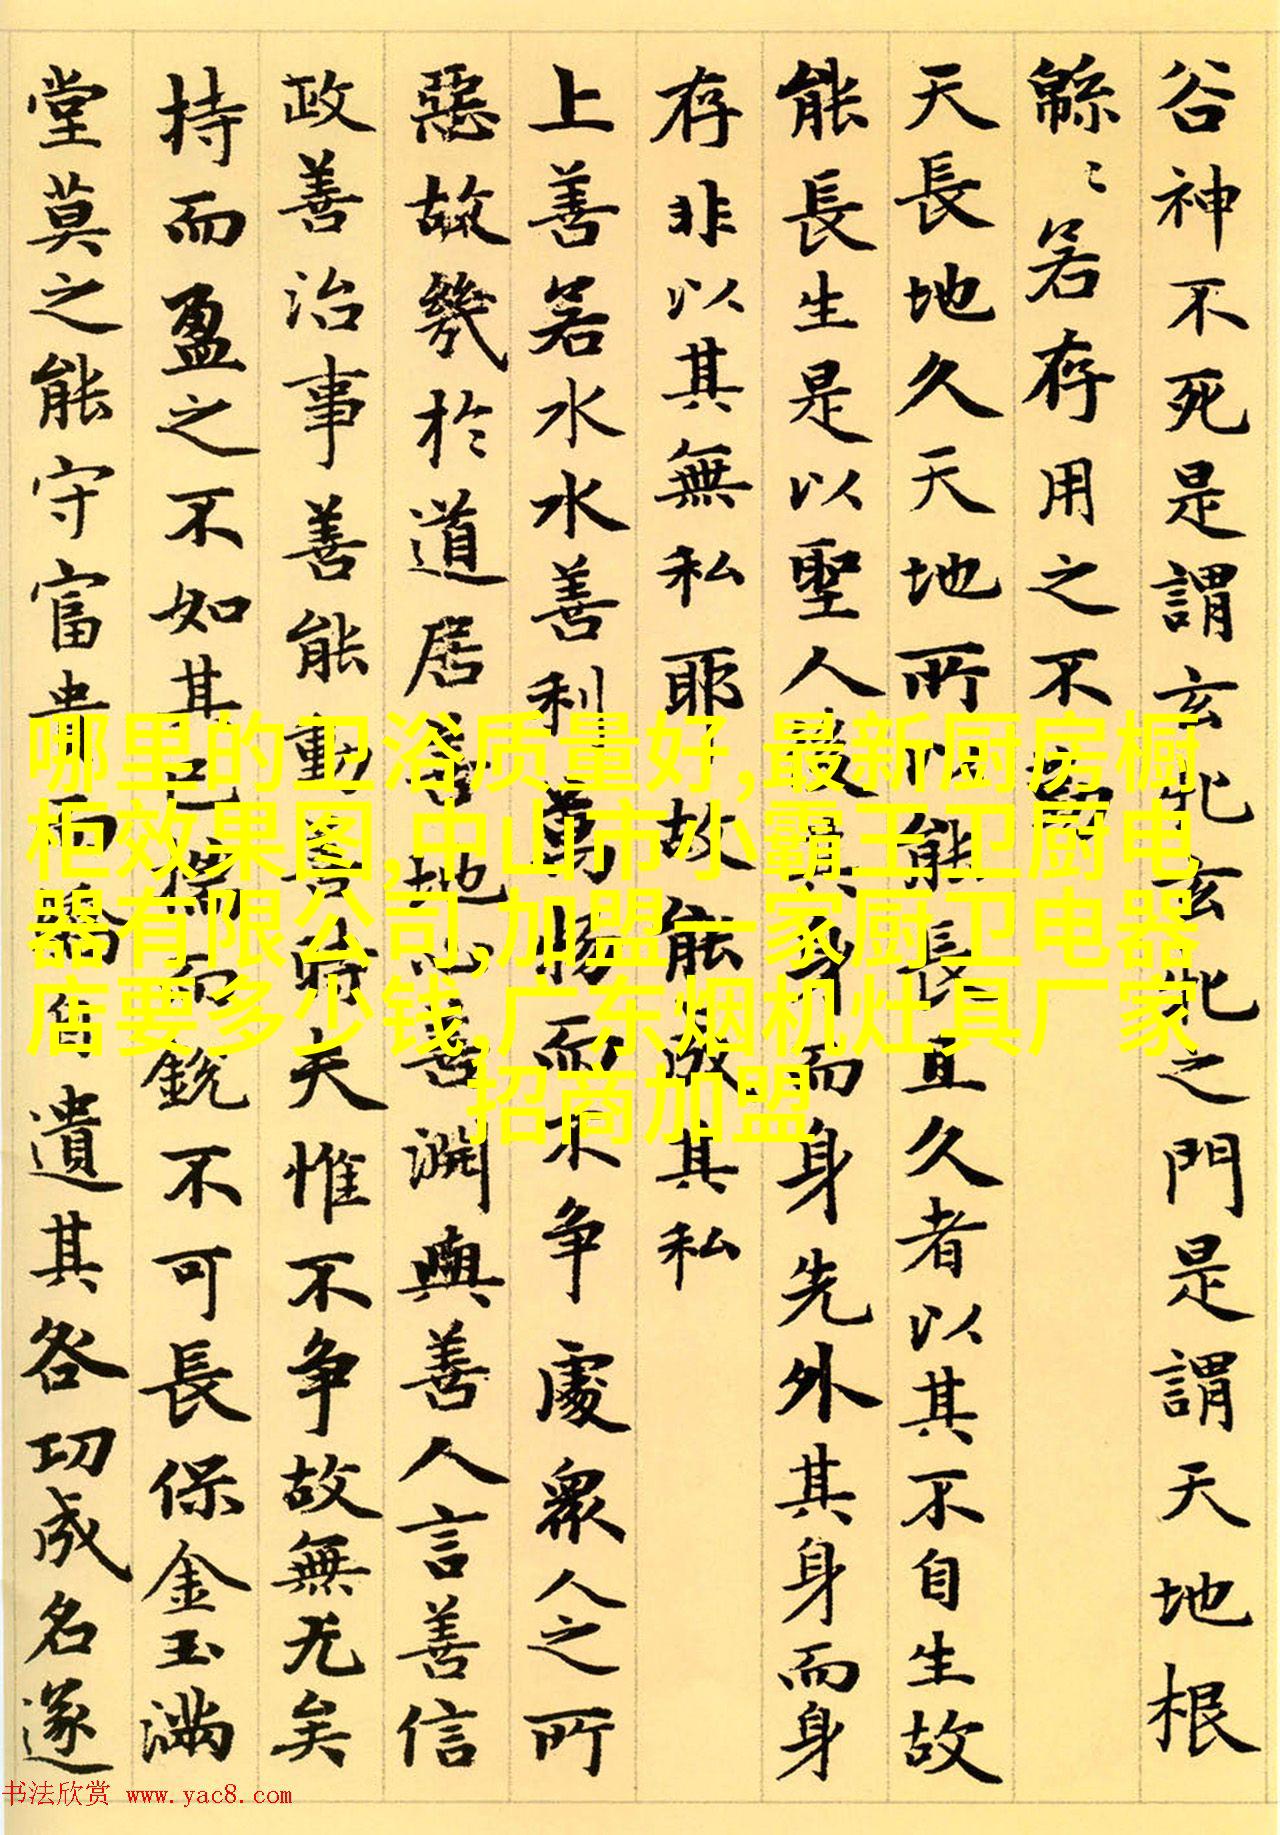 谷神不死是謂玄牝玄牝之門是謂天地根
緜〻若存用之不
天長地久天地所以能長且久者以其不自生故
能長生是以聖人後其身而身先外其身而身
存非以其無私耶故能成其私
上善若水水善利萬物而不争處衆人之所
惡故幾於道居善地心善淵與善人言善信
政善治事善能動善時夫惟不争故無尤矣
持而盈之不如其已揣而銳不可長保金玉滿
堂莫之能守富貴而驕自遺其咎功成名遂
哪里的卫浴质量好,最新厨房橱
柜效果图,中山市小霸王卫厨电
器有限公司,加盟一家厨卫电器
店要多少钱,广东烟机灶具厂家
招商加盟
书法欣赏 www.yac8.com